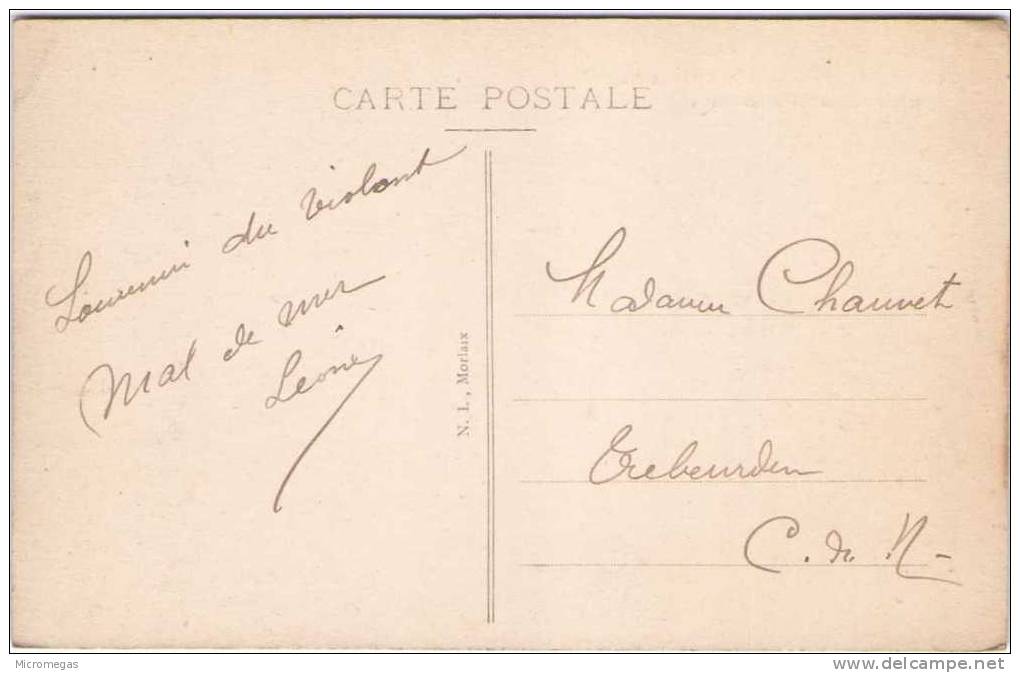 CARTE POSTALE
Souvenir du violent
Mal de mer
Léone
N. I., Morlaix
Madame Chauvet
Trebeurden
C. du N-
Micromegas
www.delcampe.net